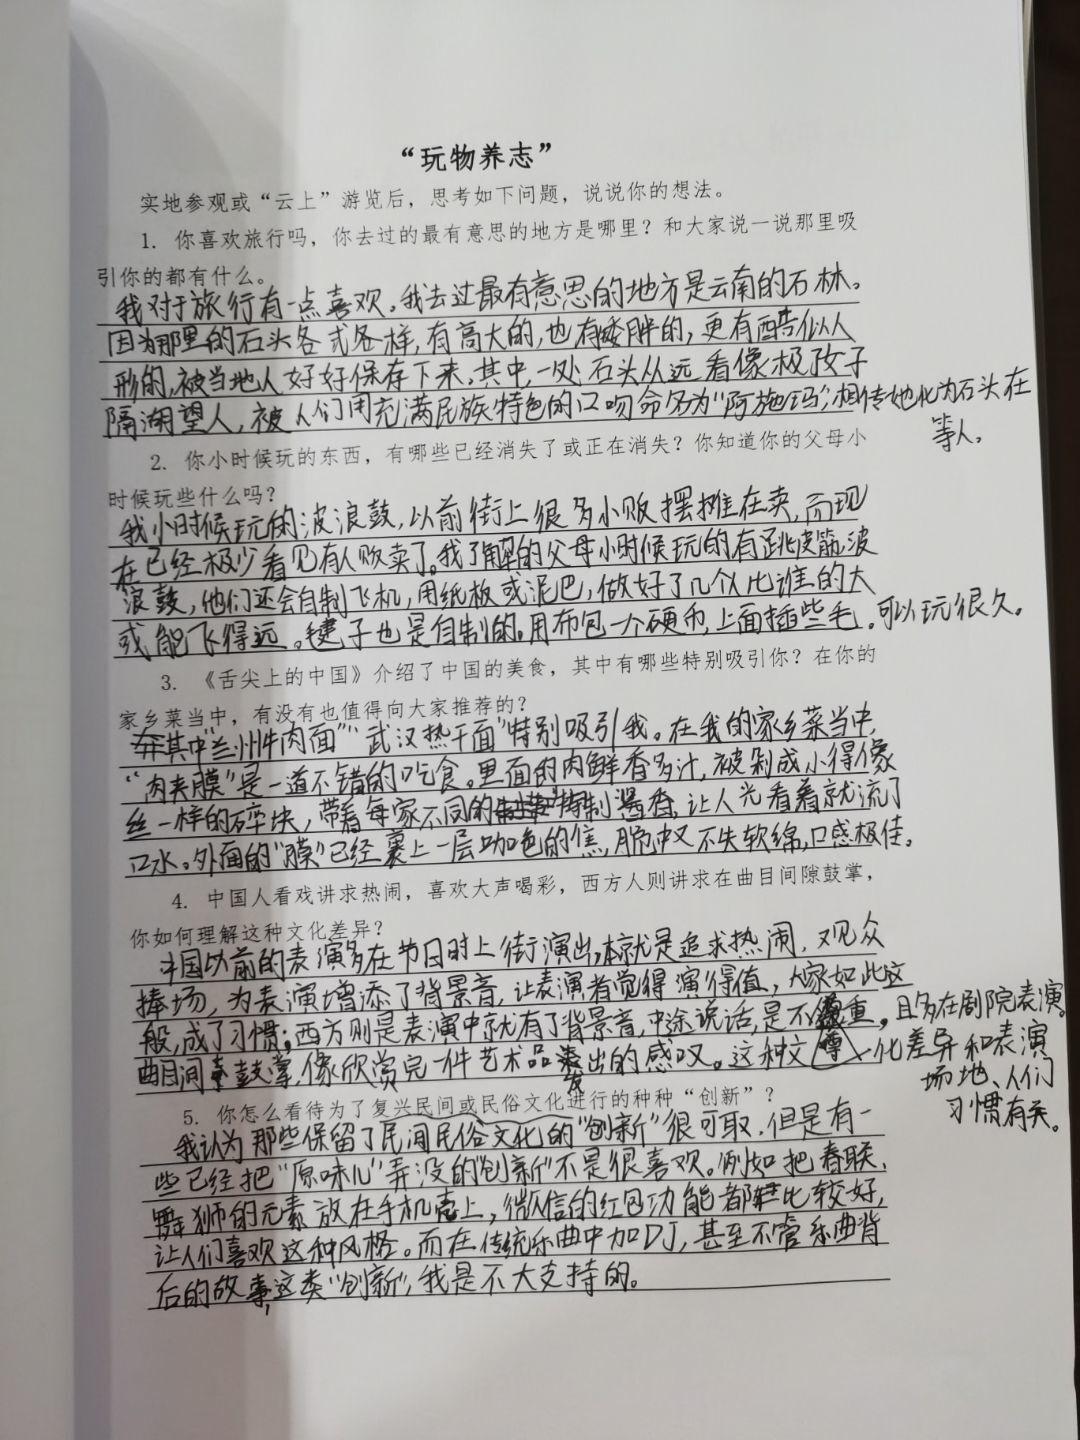 “玩物养志”
实地参观或“云上”游览后，思考如下问题，说说你的想法。
1. 你喜欢旅行吗，你去过的最有意思的地方是哪里？和大家说一说那里吸
引你的都有什么。
我对于旅行有一点喜欢。我去过最有意思的地方是云南的石林。
因为那里的石头各式各样，有高大的，也有矮胖的，更有酷似人
形的，被当地人好好保存下来，其中，一处石头从远看像极孩子
隔湖望人，被人们用充满民族特色的口吻命名为“阿施玛”，相传她化为石头在
等人。
2. 你小时候玩的东西，有哪些已经消失了或正在消失？你知道你的父母小
时候玩些什么吗？
我小时候玩的波浪鼓，以前街上很多小贩摆摊在卖，而现
在已经极少看见有人贩卖了。我了解的父母小时候玩的有跳皮筋，波
浪鼓，他们还会自制飞机，用纸板或泥巴，做好了几个比谁的大
或能飞得远。毽子也是自制的。用布包一个硬币，上面插些毛。可以玩很久。
3. 《舌尖上的中国》介绍了中国的美食，其中有哪些特别吸引你？在你的
家乡菜当中，有没有也值得向大家推荐的？
在其中“兰州牛肉面”“武汉热干面”特别吸引我。在我的家乡菜当中，
“肉夹膜”是一道不错的吃食。里面的肉鲜香多汁，被剁成小得像
丝一样的碎块，带着每家不同的特制酱香，让人光看着就流了
口水。外面的“膜”已经裹上一层咖色的焦，脆中又不失软绵，口感极佳。
4. 中国人看戏讲求热闹，喜欢大声喝彩，西方人则讲求在曲目间隙鼓掌，
你如何理解这种文化差异？
中国以前的表演多在节日时上街演出，本就是追求热闹，观众
捧场，为表演增添了背景音，让表演者觉得演得值，大家如此这
般，成了习惯；西方则是表演中就有了背景音，中途说话，是不尊重，且多在剧院表演
曲目间鼓掌，像欣赏完一件艺术品发出的感叹。这种文化差异和表演
场地、人们
习惯有关。
5. 你怎么看待为了复兴民间或民俗文化进行的种种“创新”？
我认为那些保留了民间民俗文化的“创新”很可取，但是有一
些已经把“原味儿”弄没的“创新”不是很喜欢。例如把春联、
舞狮的元素放在手机壳上，微信的红包功能都比较好，
让人们喜欢这种风格。而在传统乐曲中加DJ，甚至不管乐曲背
后的故事，这类“创新”，我是不大支持的。